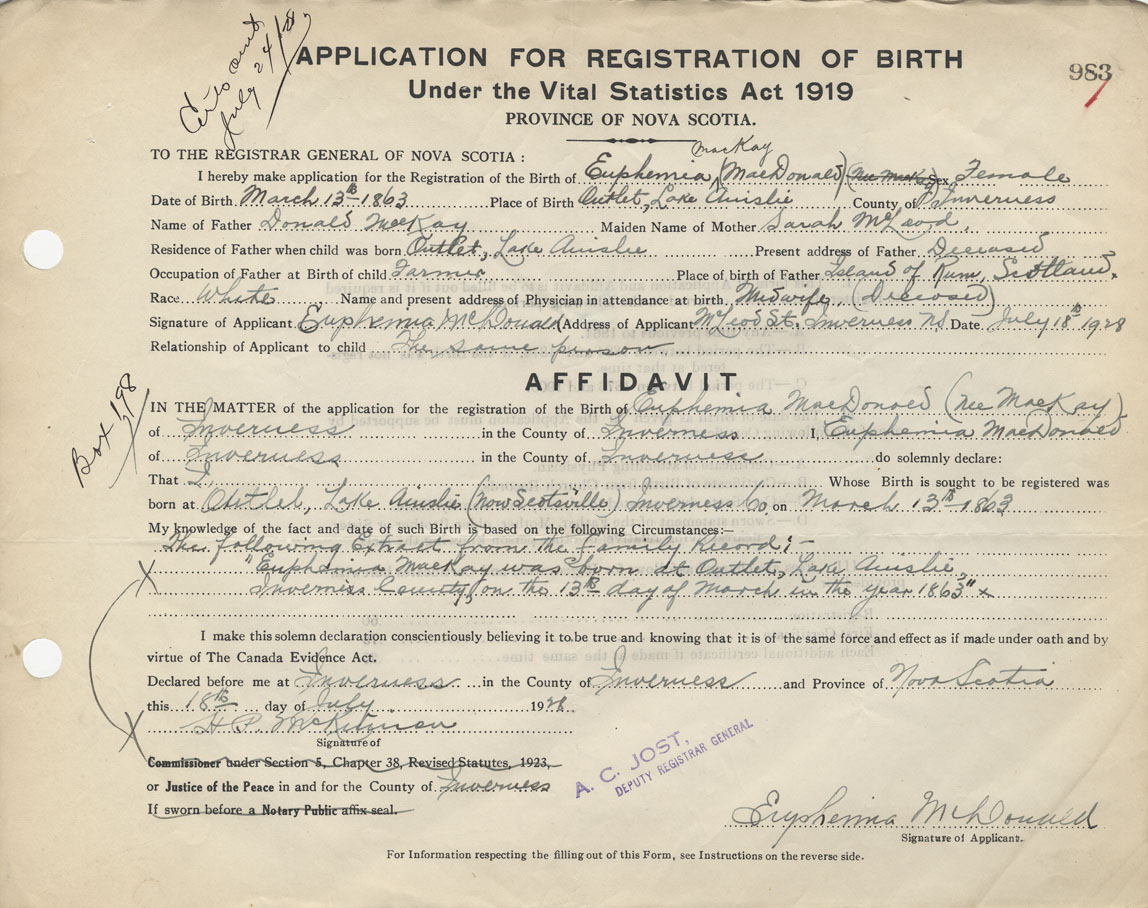 Cert's out
July 24/28
APPLICATION FOR REGISTRATION OF BIRTH
983
Under the Vital Statistics Act 1919
PROVINCE OF NOVA SCOTIA.
MacKay
TO THE REGISTRAR GENERAL OF NOVA SCOTIA :
I hereby make application for the Registration of the Birth of Euphemia (MacDonald) Sex Female
Date of Birth March 13th 1863 Place of Birth Outlet, Lake Ainslie County of Inverness
Name of Father Donald MacKay Maiden Name of Mother Sarah McLeod
Residence of Father when child was born Outlet, Lake Ainslie Present address of Father Deceased
Occupation of Father at Birth of child Farmer Place of birth of Father Island of Rum, Scotland.
Race White Name and present address of Physician in attendance at birth Midwife (Deceased)
Signature of Applicant Euphemia McDonald Address of Applicant McLeod St. Inverness NS Date July 18th 1928
Relationship of Applicant to child The same person
AFFIDAVIT
Box 198
IN THE MATTER of the application for the registration of the Birth of Euphemia MacDonald (nee MacKay)
of Inverness in the County of Inverness I, Euphemia MacDonald
of Inverness in the County of Inverness do solemnly declare:
That I, Whose Birth is sought to be registered was
born at Outlet, Lake Ainslie (Now Scotsville) Inverness Co. on March 13th 1863
My knowledge of the fact and date of such Birth is based on the following Circumstances:—
The following Extract from the Family Record;-
X "Euphemia MacKay was born at Outlet, Lake Ainslie,
Inverness County, on the 13th day of March in the year 1863" x
I make this solemn declaration conscientiously believing it to be true and knowing that it is of the same force and effect as if made under oath and by
virtue of The Canada Evidence Act.
Declared before me at Inverness in the County of Inverness and Province of Nova Scotia
this 18th day of July 1928
X
Signature of
Commissioner under Section 5, Chapter 38, Revised Statutes, 1923,
or Justice of the Peace in and for the County of Inverness
If sworn before a Notary Public affix seal.
A. C. JOST,
DEPUTY REGISTRAR GENERAL
Euphemia McDonald
Signature of Applicant.
For Information respecting the filling out of this Form, see Instructions on the reverse side.